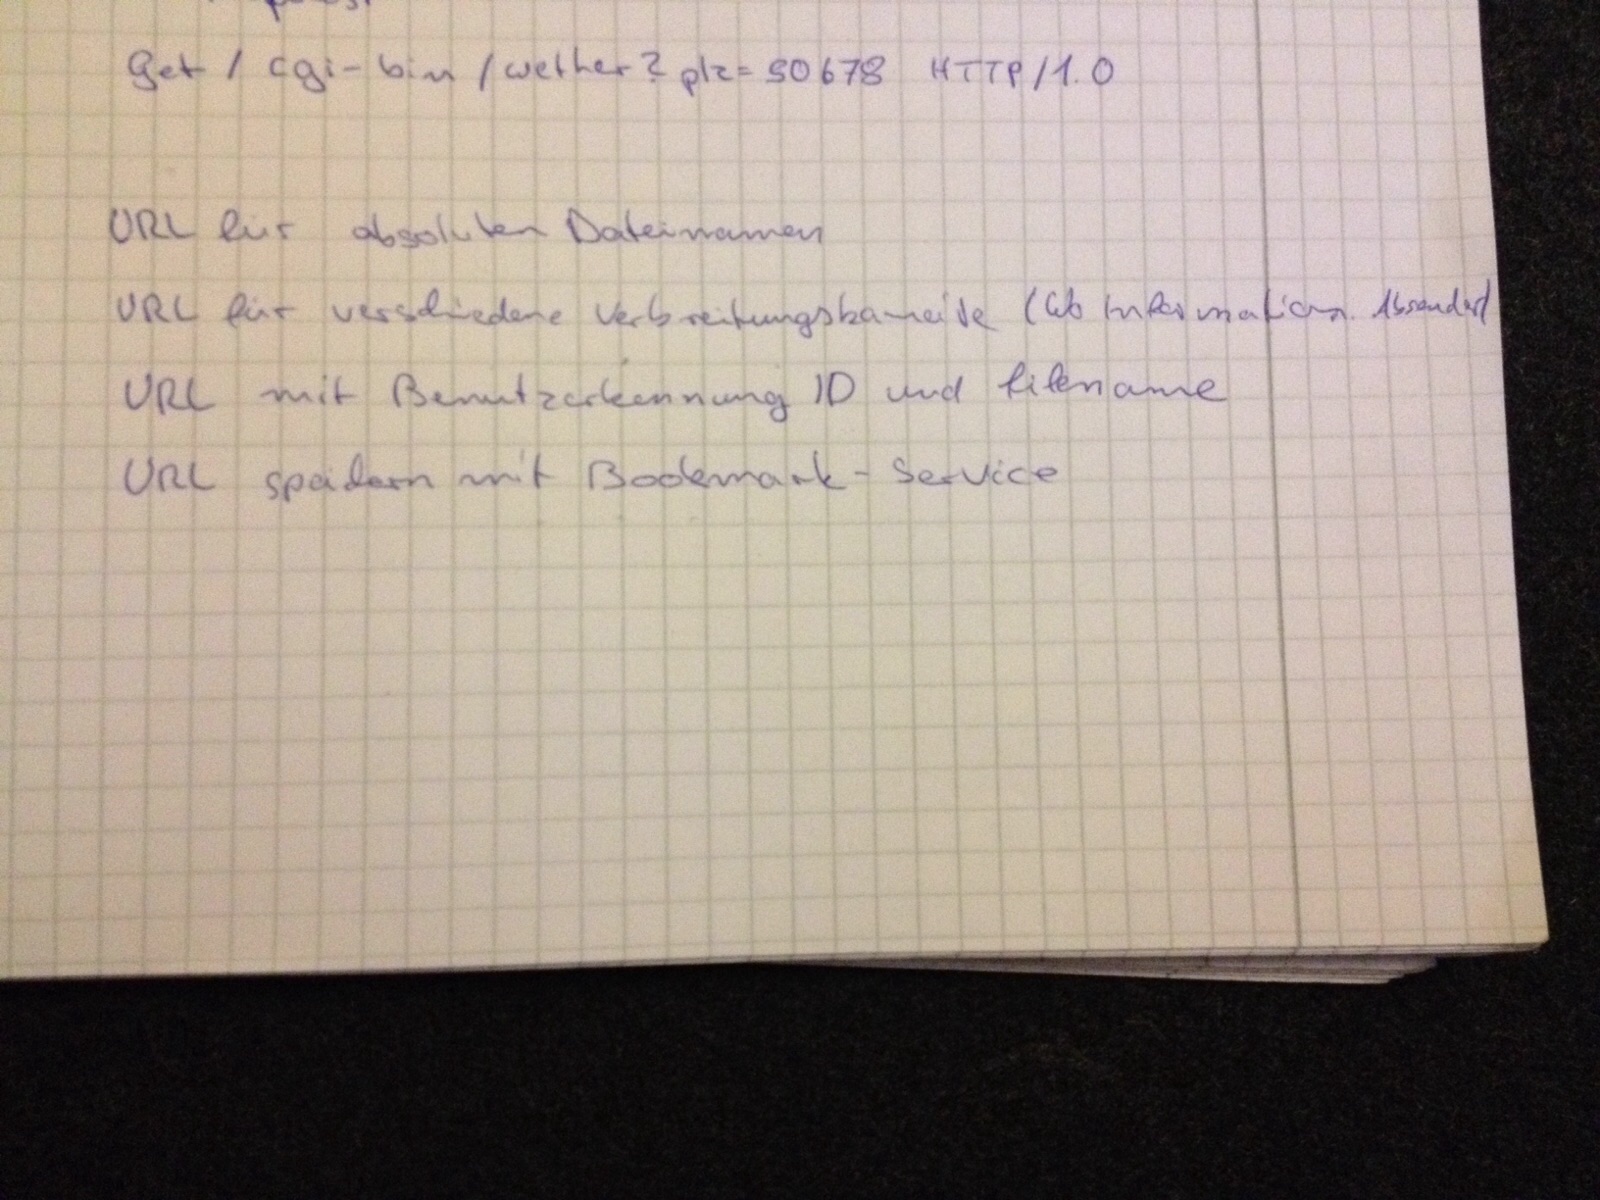 Get / cgi-bin / wether? plz=50678 HTTP/1.0
URL für absoluten Dateinamen
URL für verschiedene Verbreitungs (Information Absender)
URL mit Benutzerkennung ID und filename
URL speichern mit Bookmark-Service